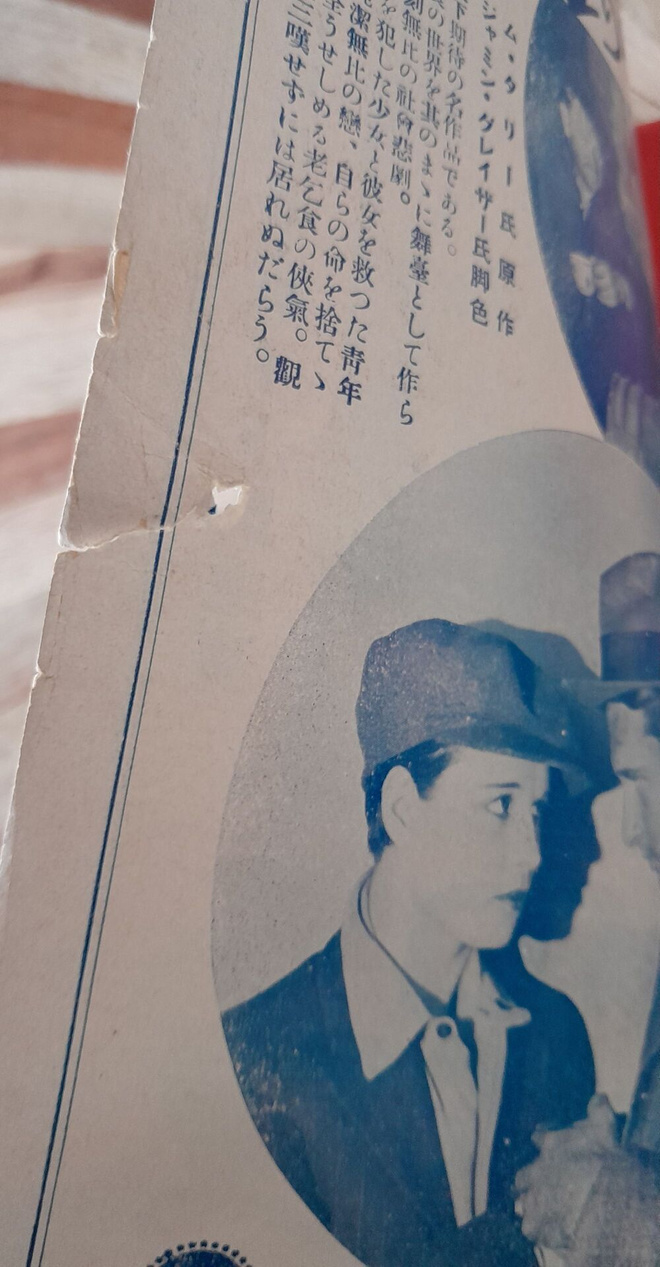 ム・タリー氏原作
ジャミン・グレイザー氏脚色
下期待の名作品である。
の世界を其のまゝに舞臺として作ら
刻無比の社會悲劇。
を犯した少女と彼女を救つた青年
潔無比の戀、自らの命を捨てゝ
全うせしめる老乞食の俠氣。觀
三嘆せずには居れぬだらう。